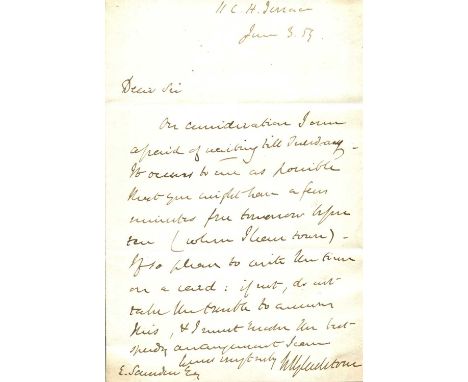 11 C. H. Terrace
June 3. 59.
Dear Sir
On consideration I am
afraid of waiting till Tuesday.
It occurs to me as possible
that you might have a few
minutes free tomorrow before
ten (when I leave town).
If so please to write the time
on a card: if not, do not
take the trouble to answer
this, & I must make the best
speedy arrangement I can
yours very truly WEGladstone
E. Saunders Esq